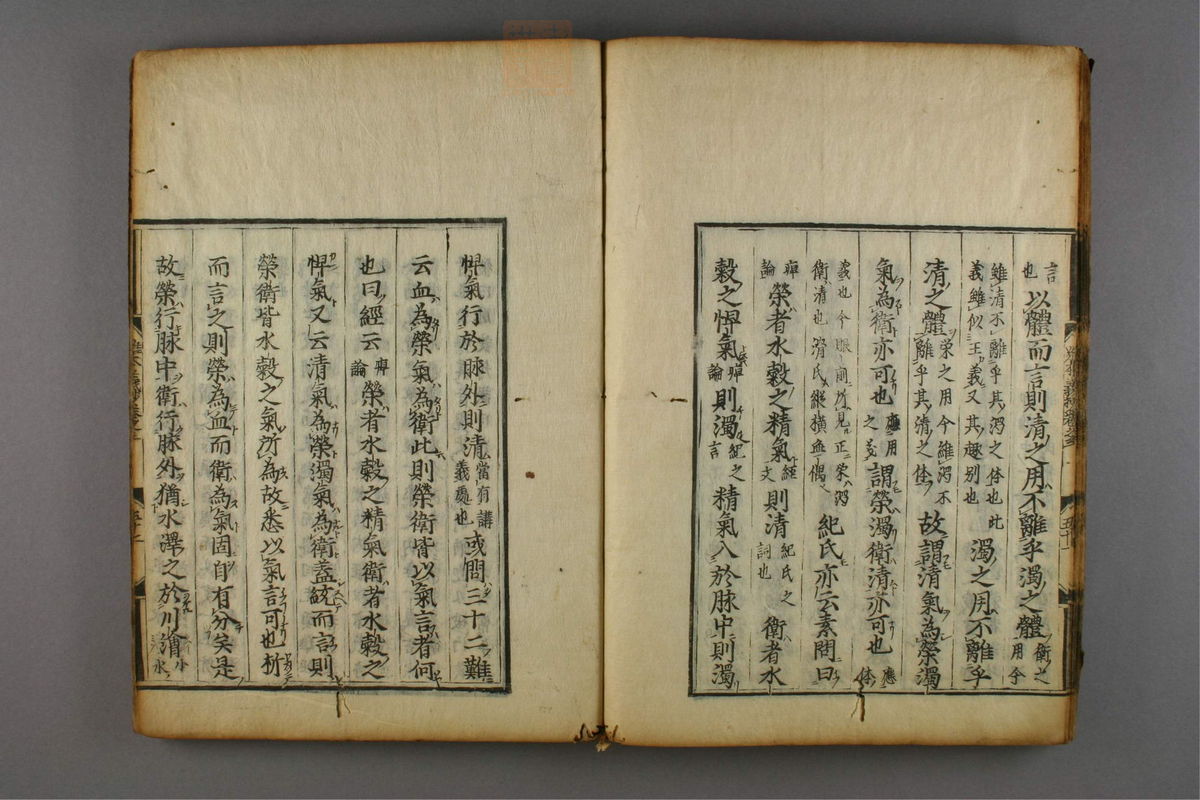 言也以體而言則清之用不離乎濁之體衛之用今
雖清不離乎其濁之体也此義雖似王義又其趣別也濁之用不離乎
清之體榮之用今雖濁不離乎其清之体故謂清氣為榮濁
氣為衛亦可也應用之義謂榮濁衛清亦可也應体
義也今眼前所見正榮濁衛清也滑氏縱横無偶紀氏亦云素問曰
痺論榮者水穀之精氣經文則清紀氏之詞也衛者水
穀之悍氣痺論則濁紀之言精氣入於脉中則濁
悍氣行於脉外則清當有講義處也或問三十二難
云血為榮氣為衛此則榮衛皆以氣言者何
也曰經云痺論榮者水穀之精氣衛者水穀之
悍氣又云清氣為榮濁氣為衛蓋統而言則
榮衛皆水穀之氣所為故悉以氣言可也析
而言之則榮為血而衛為氣固自有分矣是
故榮行脉中衛行脉外猶水澤之於川澮小水